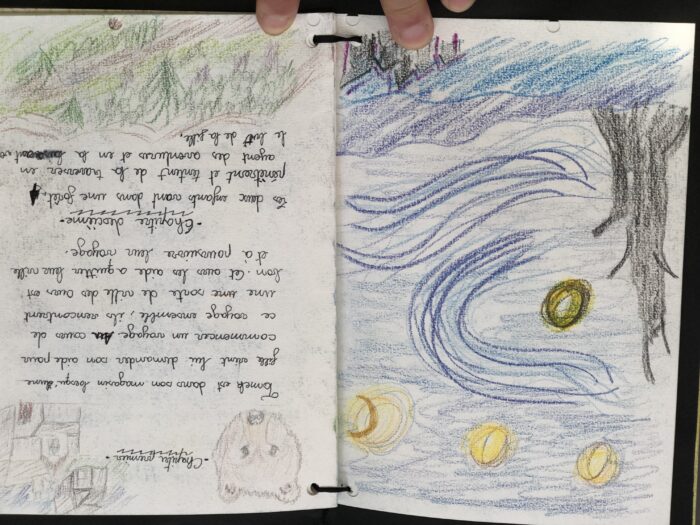 - Chapitre premier -
Tomek est dans son magasin lorsqu'une
fille vient lui demander son aide pour
commencer un voyage. Au cours de
ce voyage ensemble, ils rencontrent
une une sorte de ville des ours est
bon. Cet ours les aide a quitter leur ville
et à poursuivre leur voyage.
- Chapitre deuxième -
deux enfants vont dans une forêt,
pénètrent et tentent de la traverser en
ayant des aventures et en la
le but de la fille,